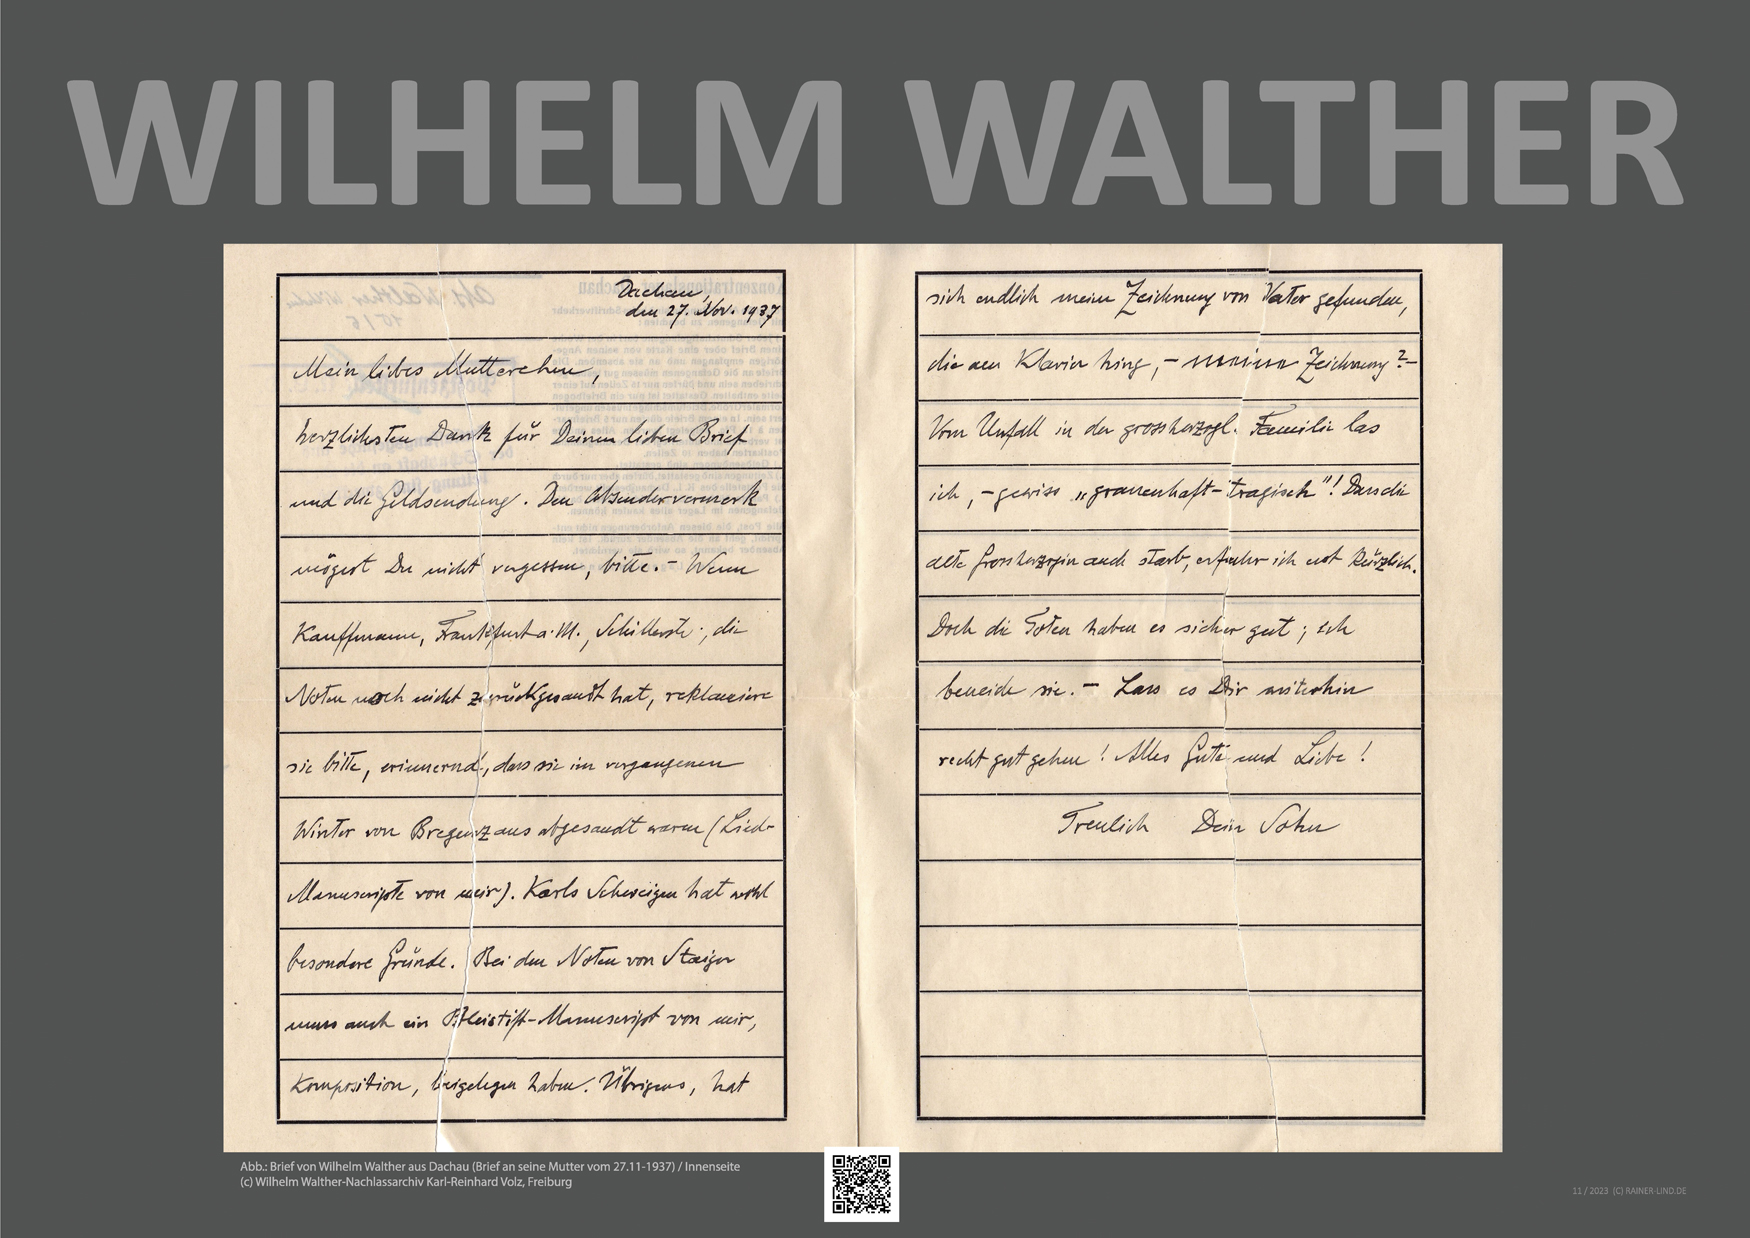 WILHELM WALTHER
Dachau,
den 27. Nov. 1937
Mein liebes Mutterchen,
herzlichsten Dank für Deinen lieben Brief
und die Geldsendung. Den Absendervermerk
mögest Du nicht vergessen, bitte. – Wenn
Kauffmann, Frankfurt a. M., Schillerstr., die
Noten noch nicht zurückgesandt hat, reklamiere
sie bitte, erinnernd, dass sie im vergangenen
Winter von Bregenz aus abgesandt waren (Lied-
Manuscripte von mir). Karls Schweigen hat wohl
besondere Gründe. Bei den Noten von Staiger
muss auch ein Bleistift-Manuscript von mir,
Komposition, beigelegen haben. Übrigens, hat
sich endlich meine Zeichnung von Vater gefunden,
die am Klavier hing, – meine Zeichnung? –
Vom Unfall in der grossherzogl. Familie las
ich, – gewiss „grauenhaft-tragisch"! Dass die
alte Grossherzogin auch starb, erfuhr ich erst kürzlich.
Doch die Toten haben es sicher gut; ich
beneide sie. – Lass es Dir weiterhin
recht gut gehen! Alles Gute und Liebe!
Treulich Dein Sohn
Abb.: Brief von Wilhelm Walther aus Dachau (Brief an seine Mutter vom 27.11-1937) / Innenseite
(c) Wilhelm Walther-Nachlassarchiv Karl-Reinhard Volz, Freiburg
11 / 2023 (C) RAINER-LIND.DE